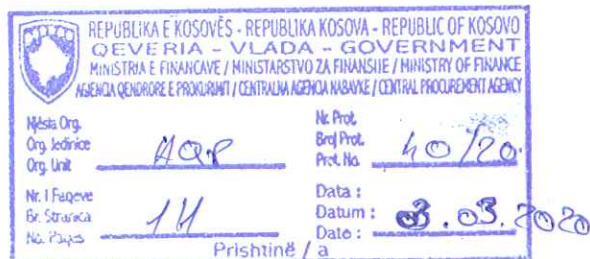 REPUBLIKA E KOSOVËS - REPUBLIKA KOSOVA - REPUBLIC OF KOSOVO
QEVERIA - VLADA - GOVERNMENT
MINISTRIA E FINANCAVE / MINISTARSTVO ZA FINANSIJE / MINISTRY OF FINANCE
AGJENCIA QENDRORE E PROKURIMIT / CENTRALNA AGENCIJA NABAVKE / CENTRAL PROCUREMENT AGENCY
Njësia Org. Nr. Prot.
Org. Jedinice Broj Prot.
Org. Unit AQP Prot. No. 40/20
Nr. i Faqeve Data :
Br. Stranica Datum : 03.03.2020
No. Pages Date :
Prishtinë / a